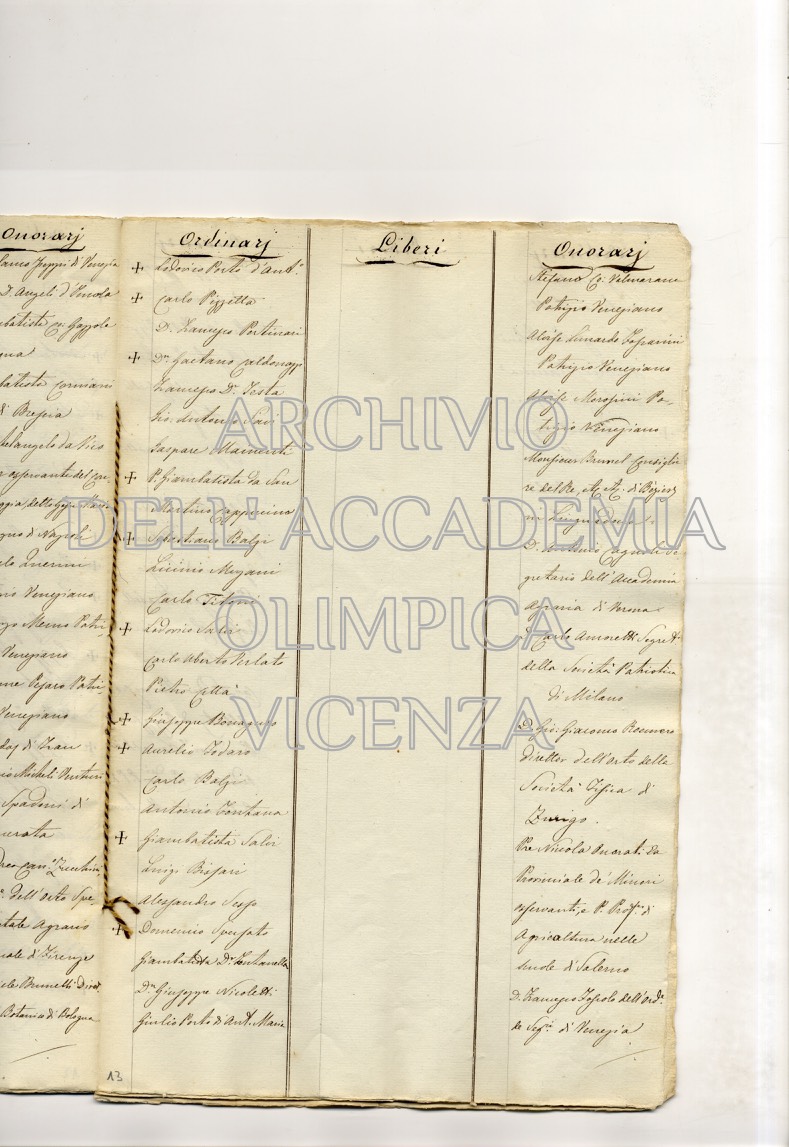 Onorarj
di Venezia
D. Angeli d'
Co: Gazzola
di Brescia
Michelangelo da Vico
osservante del
di Napoli
Querini
Venegiano
Memo Patri
Venegiano
Pesaro Patri
Venegiano
di Zara
Micheli Venturi
Spadoni di
Macerata
dell'Orto Spe
Agrario
di Firenze
Brunetti Diret.
Botanico di Bologna
Ordinarj
+ Lodovico Porto d'Ant.
+ Carlo Pizzetta
D. Francesco Portinari
+ Dn. Gaetano Caldonazzo
Francesco Dr. Testa
Gio. Antonio Savi
Gaspare Mainenti
+ P. Giambatista da San
Martino Cappucino
+ Sebastiano Balzi
Licinio Muzani
Carlo Titoni
+ Lodovico Salvi
Carlo Alberto Verlato
Pietro Cittá
+ Giuseppe Bonaguro
+ Aurelio Todaro
Carlo Balzi
Antonio Fontana
+ Giambatista Salvi
Luigi Bissari
Alessandro Sesso
+ Domenico Sperzato
Giambatista Dr. Fontanella
Dn. Giuseppe Nicoletti
Giulio Porto di Ant. Maria
13
Liberi
Onorarj
Stefano Co: Valmarana
Patrizio Venegiano
Alvise Lunardo Foscarini
Patrizio Venegiano
Alvise Morosini Pa-
trizio Venegiano
Monsieur Brunel Consiglie
re del Re, &c. &c. di Beziers
in Linguadocca
D. Antonio Cagnoli Se
gretario dell'Accademia
Agraria di Verona
D. Carlo Amoretti Segret.
della Societá Patriotica
di Milano
D. Gio: Giacomo Roemero
Direttor dell'Orto della
Societá Fisica di
Zurigo.
Pre Nicola Onorati Da
Provinciale de' Minori
osservanti, e P. Profr. di
Agricoltura nelle
scuole di Salerno
D. Francesco Topolo dell'Ord.e
de Segri. di Venezia
ARCHIVIO
DELL' ACCADEMIA
OLIMPICA
VICENZA